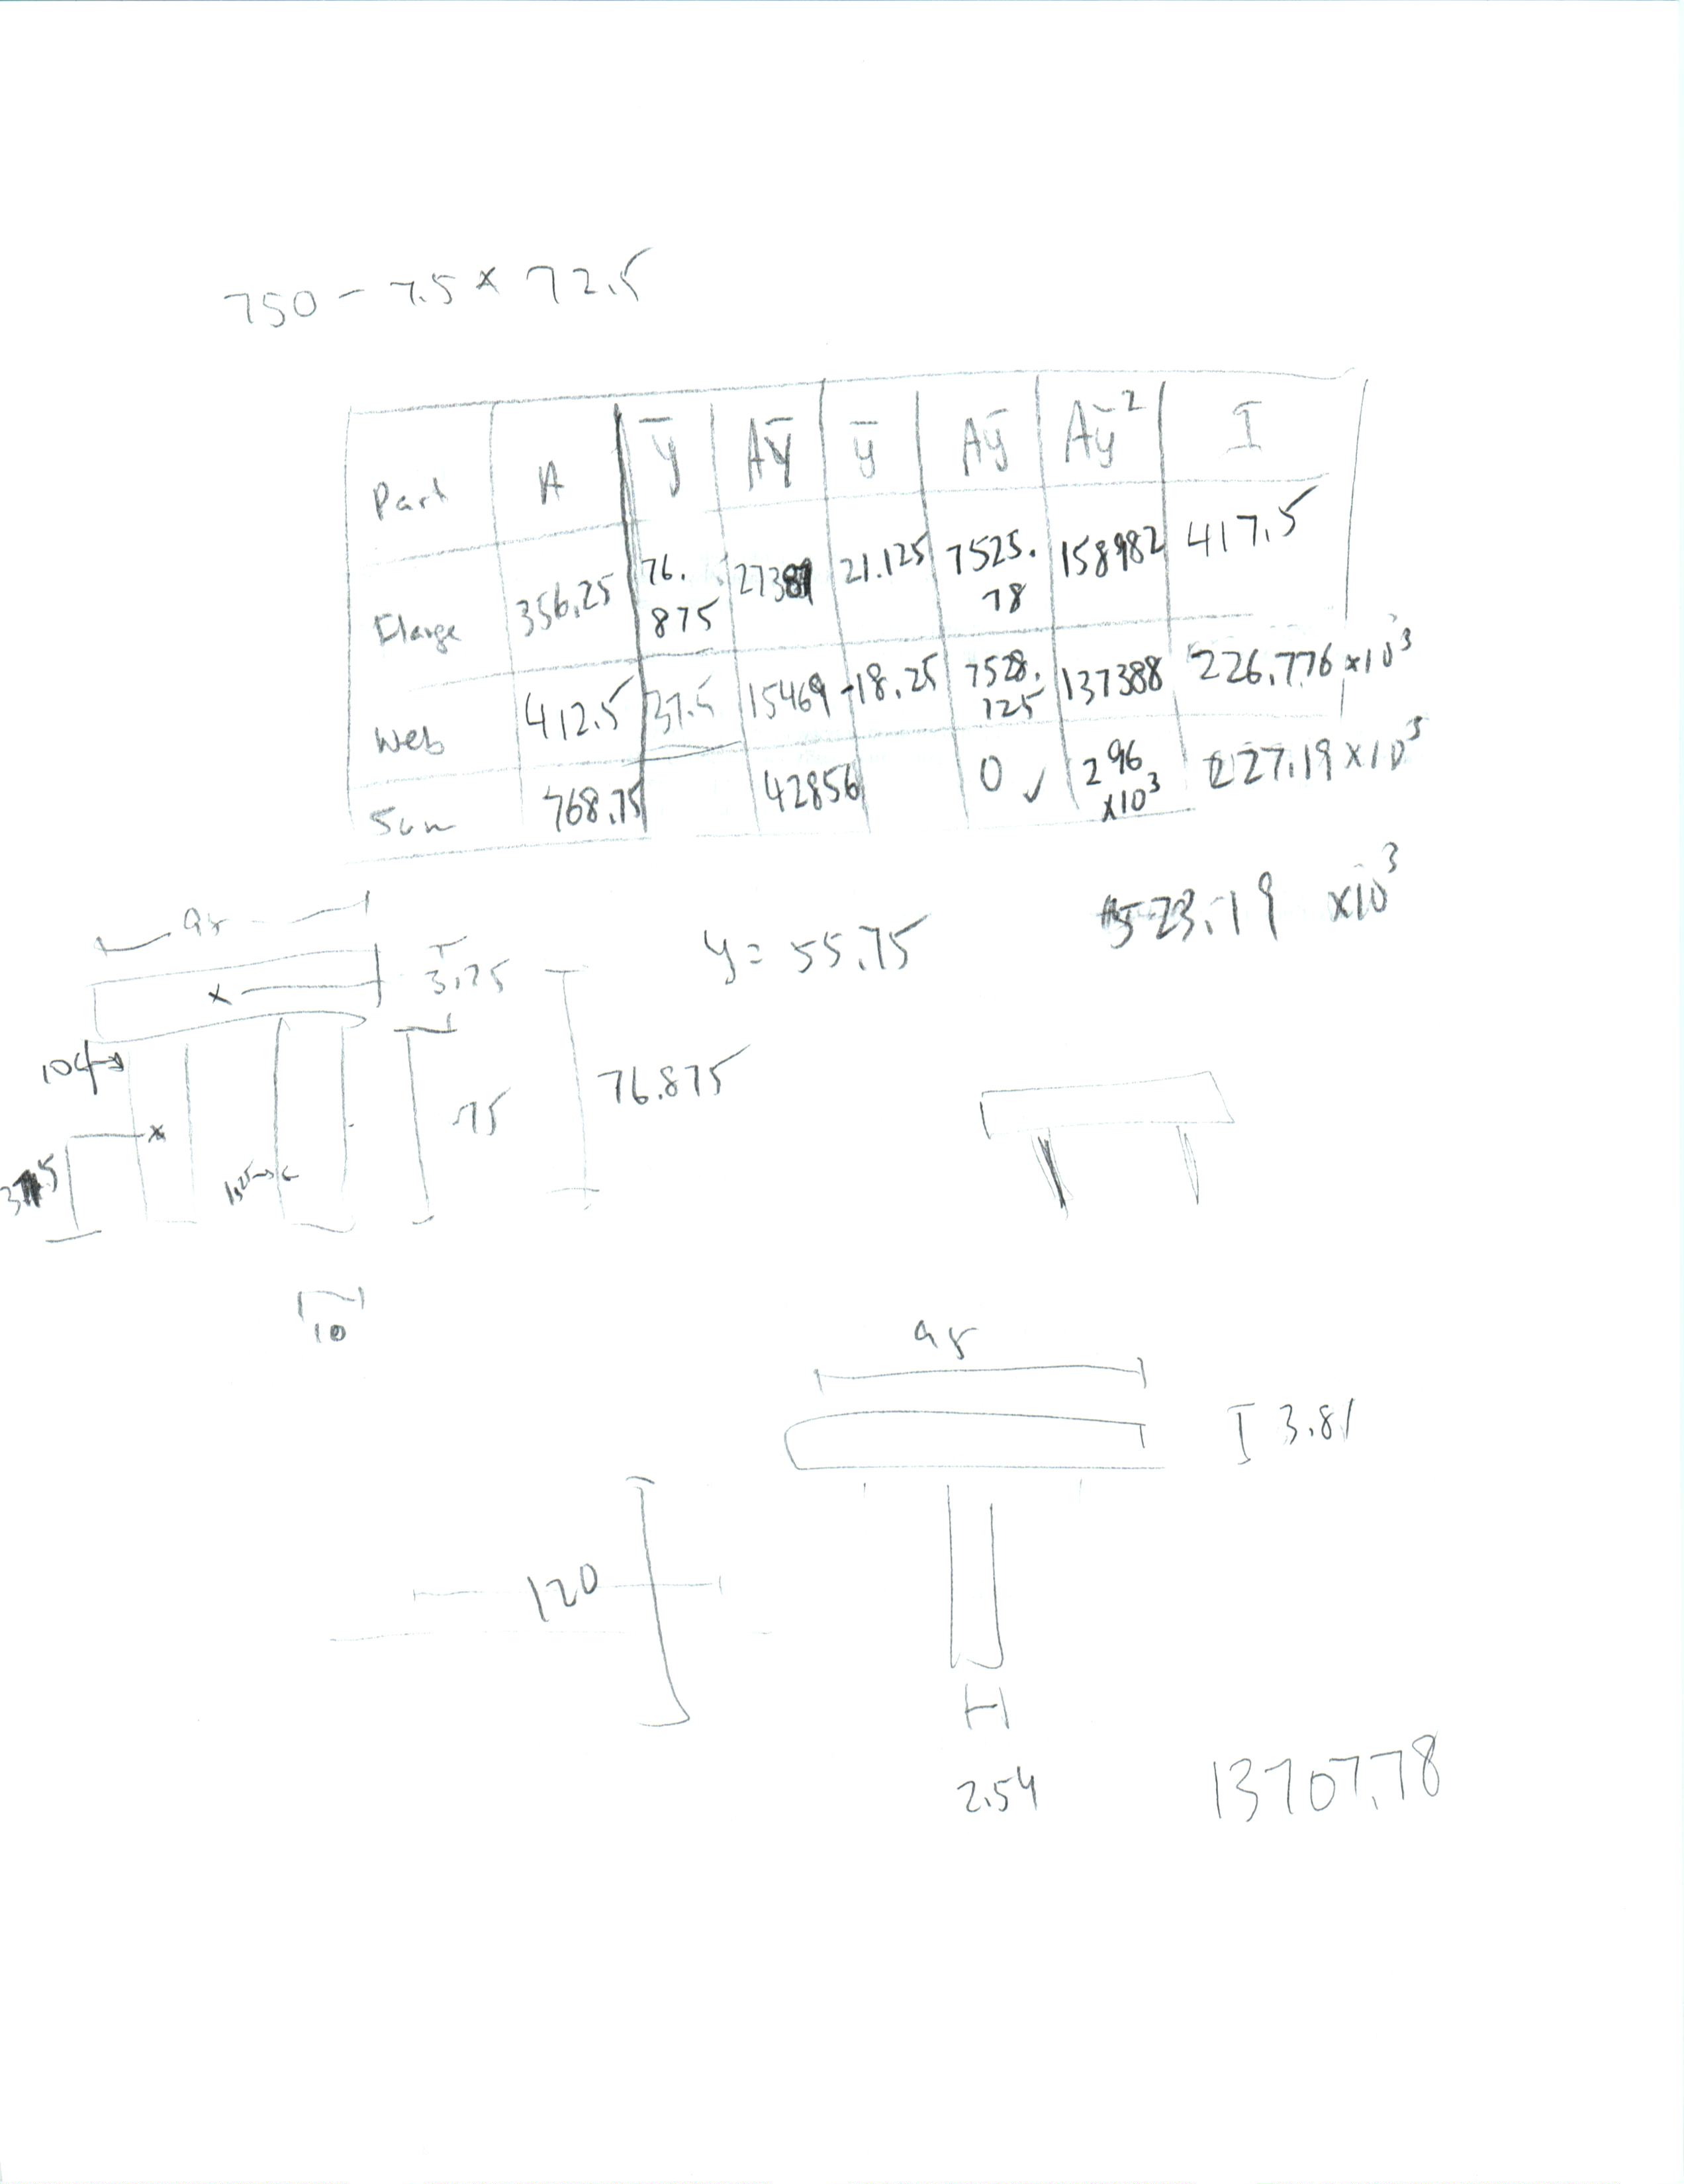 750 - 7.5 × 72.5
Part A ȳ Aȳ ȳ Aȳ Aȳ² I
Flange 356.25 76.875 27387 21.125 7525.78 158982 417.5
Web 412.5 37.5 15469 -18.25 7528.125 137388 226.776 ×10³
Sum 768.75 42856 0 ✓ 296 ×10³ 227.19 ×10³
523.19 ×10³
95
y = 55.75
3.75
76.875
75
10
95
3.81
120
2.54
13707.78